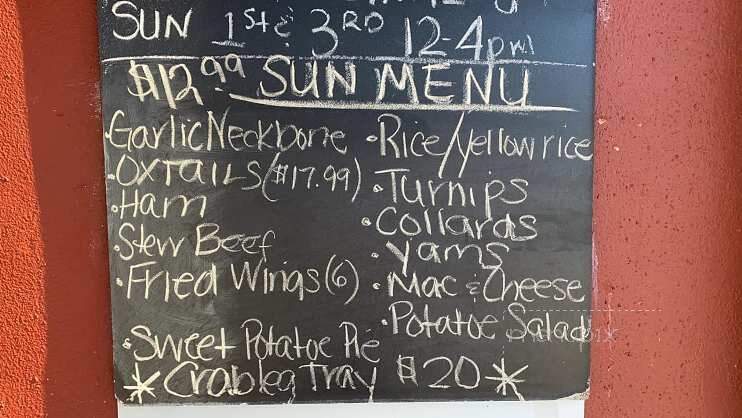 SUN 1St & 3RD 12-4pm
$12.99 SUN MENU
•Garlic Neckbone
•OXTAILS ($17.99)
•Ham
•Stew Beef
•Fried Wings (6)
•Sweet Potatoe Pie
•Rice/Yellow rice
•Turnips
•Collards
•Yams
•Mac & Cheese
•Potatoe Salad
*Crableg Tray $20*